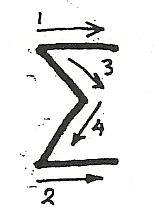 1
3
Σ
4
2